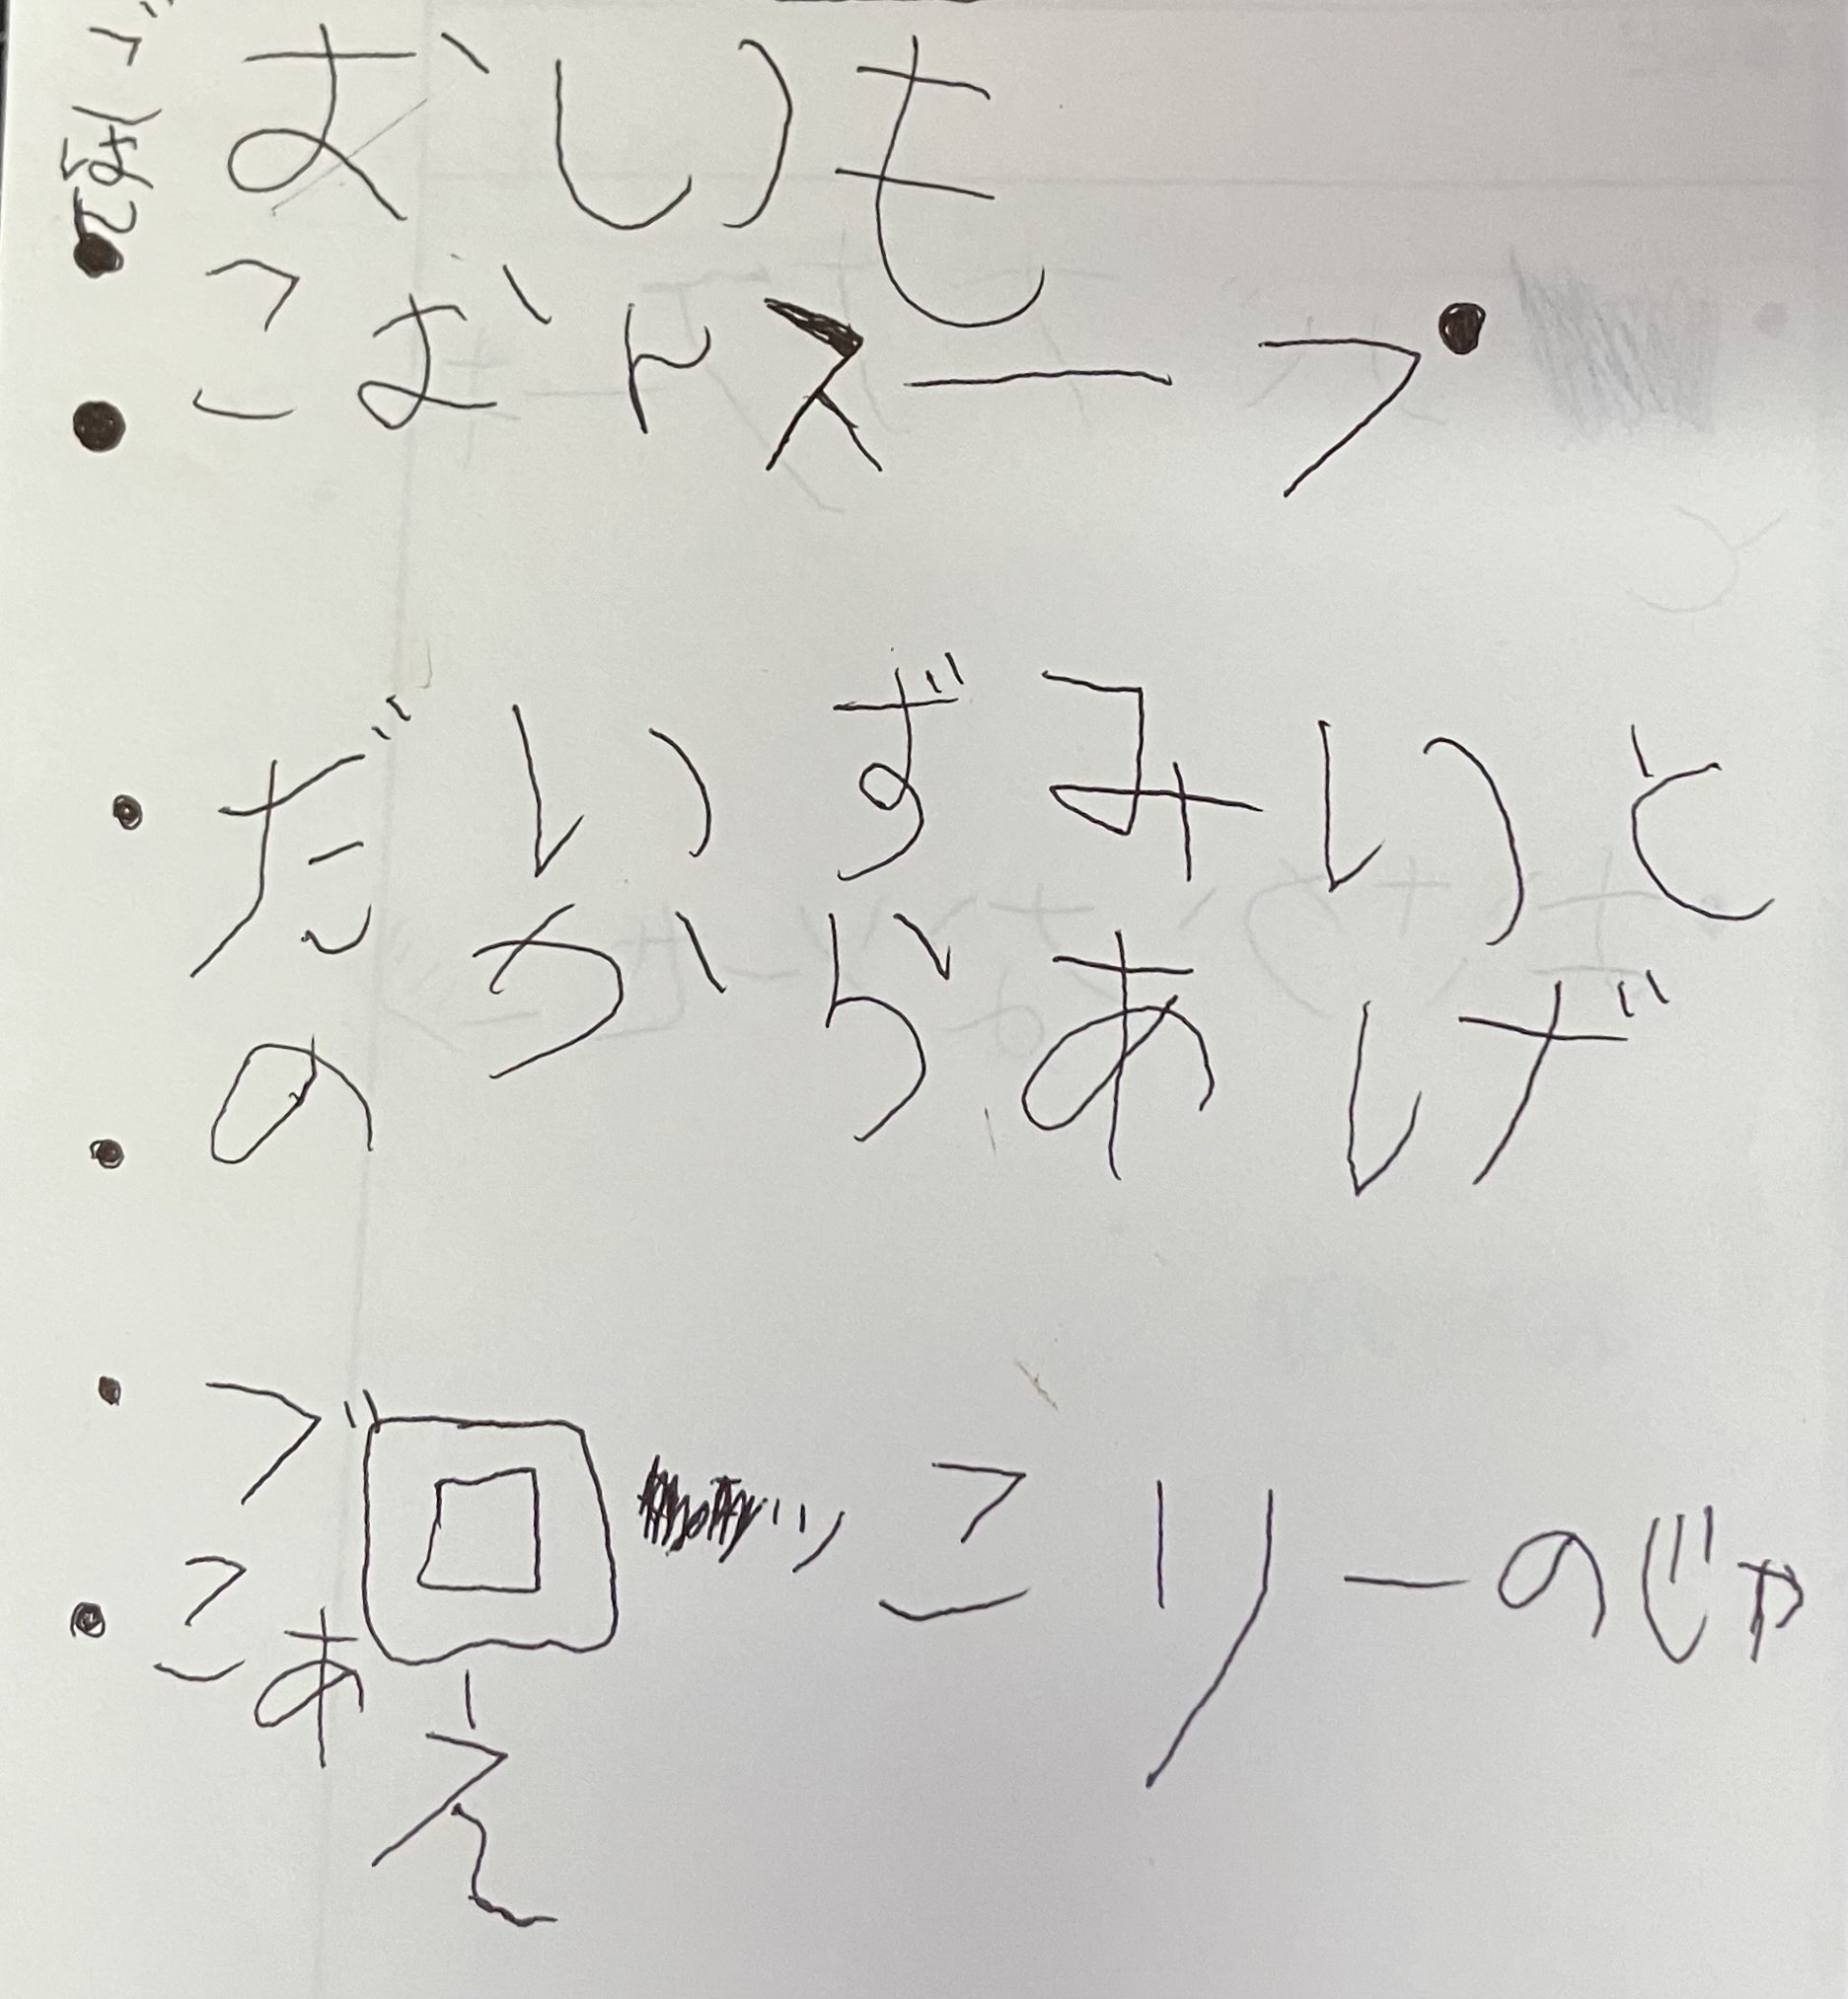 おいも
こおトスープ
だいずみいと
のからあげ
ブロッコリーのじゃ
こあえ